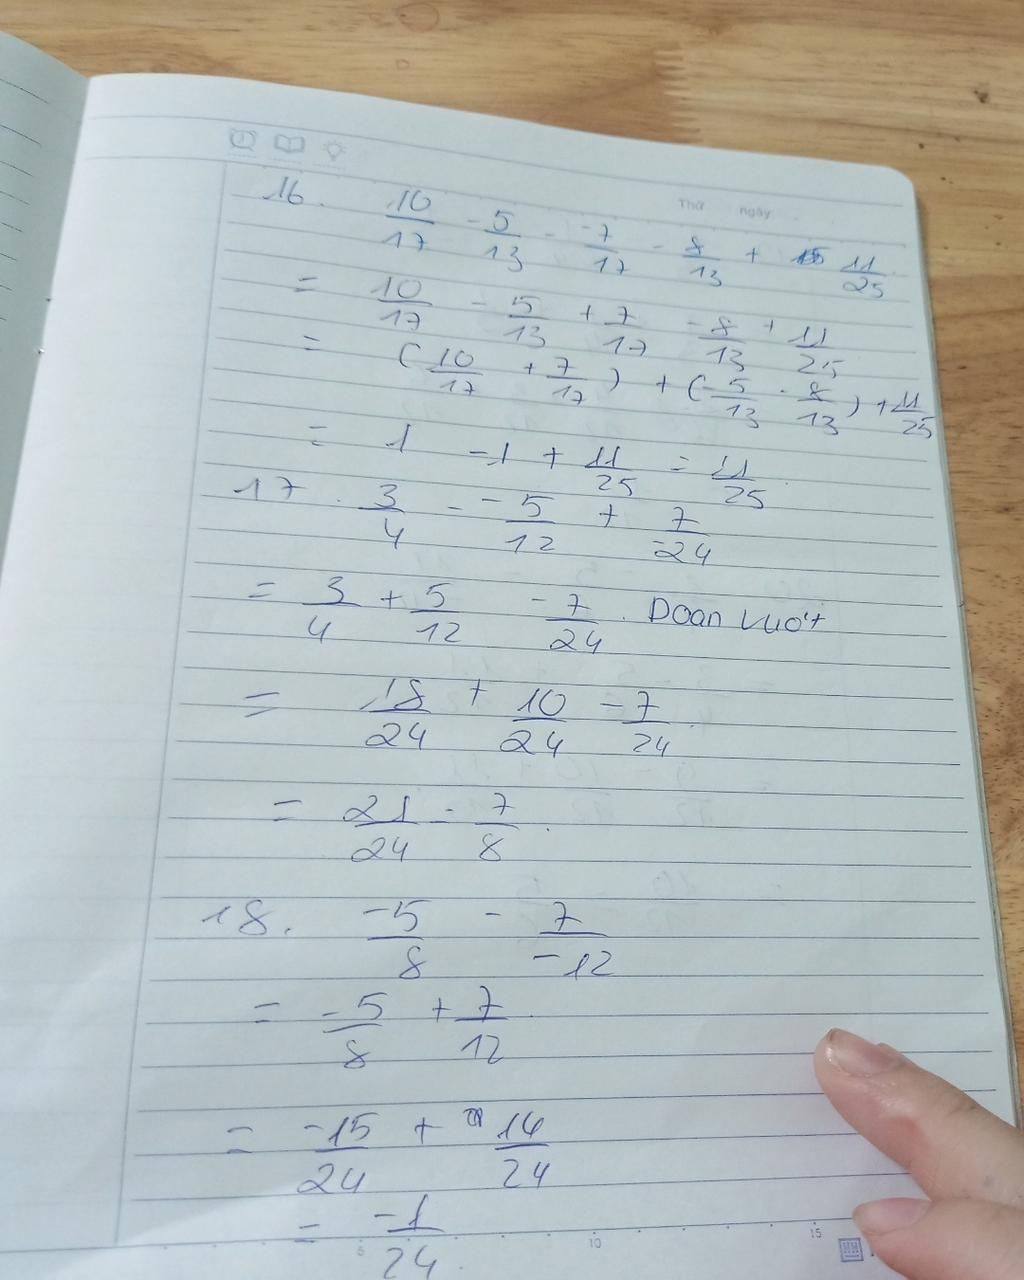 Thứ ngày
16. 10/17 - 5/13 - -7/17 - 8/13 + 11/25
= 10/17 - 5/13 + 7/17 - 8/13 + 11/25
= (10/17 + 7/17) + (-5/13 - 8/13) + 11/25
= 1 - 1 + 11/25 = 11/25
17. 3/4 - -5/12 + 7/-24
= 3/4 + 5/12 - 7/24. Doan vuot
= 18/24 + 10/24 - 7/24
= 21/24 = 7/8.
18. -5/8 - 7/-12
= -5/8 + 7/12
= -15/24 + 14/24
= -1/24.
5 10 15